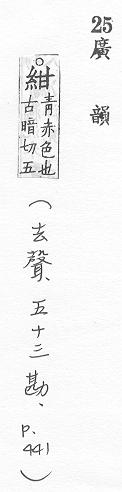 25廣韻
紺青赤色也古暗切五
（去聲、五十三勘、p.441）